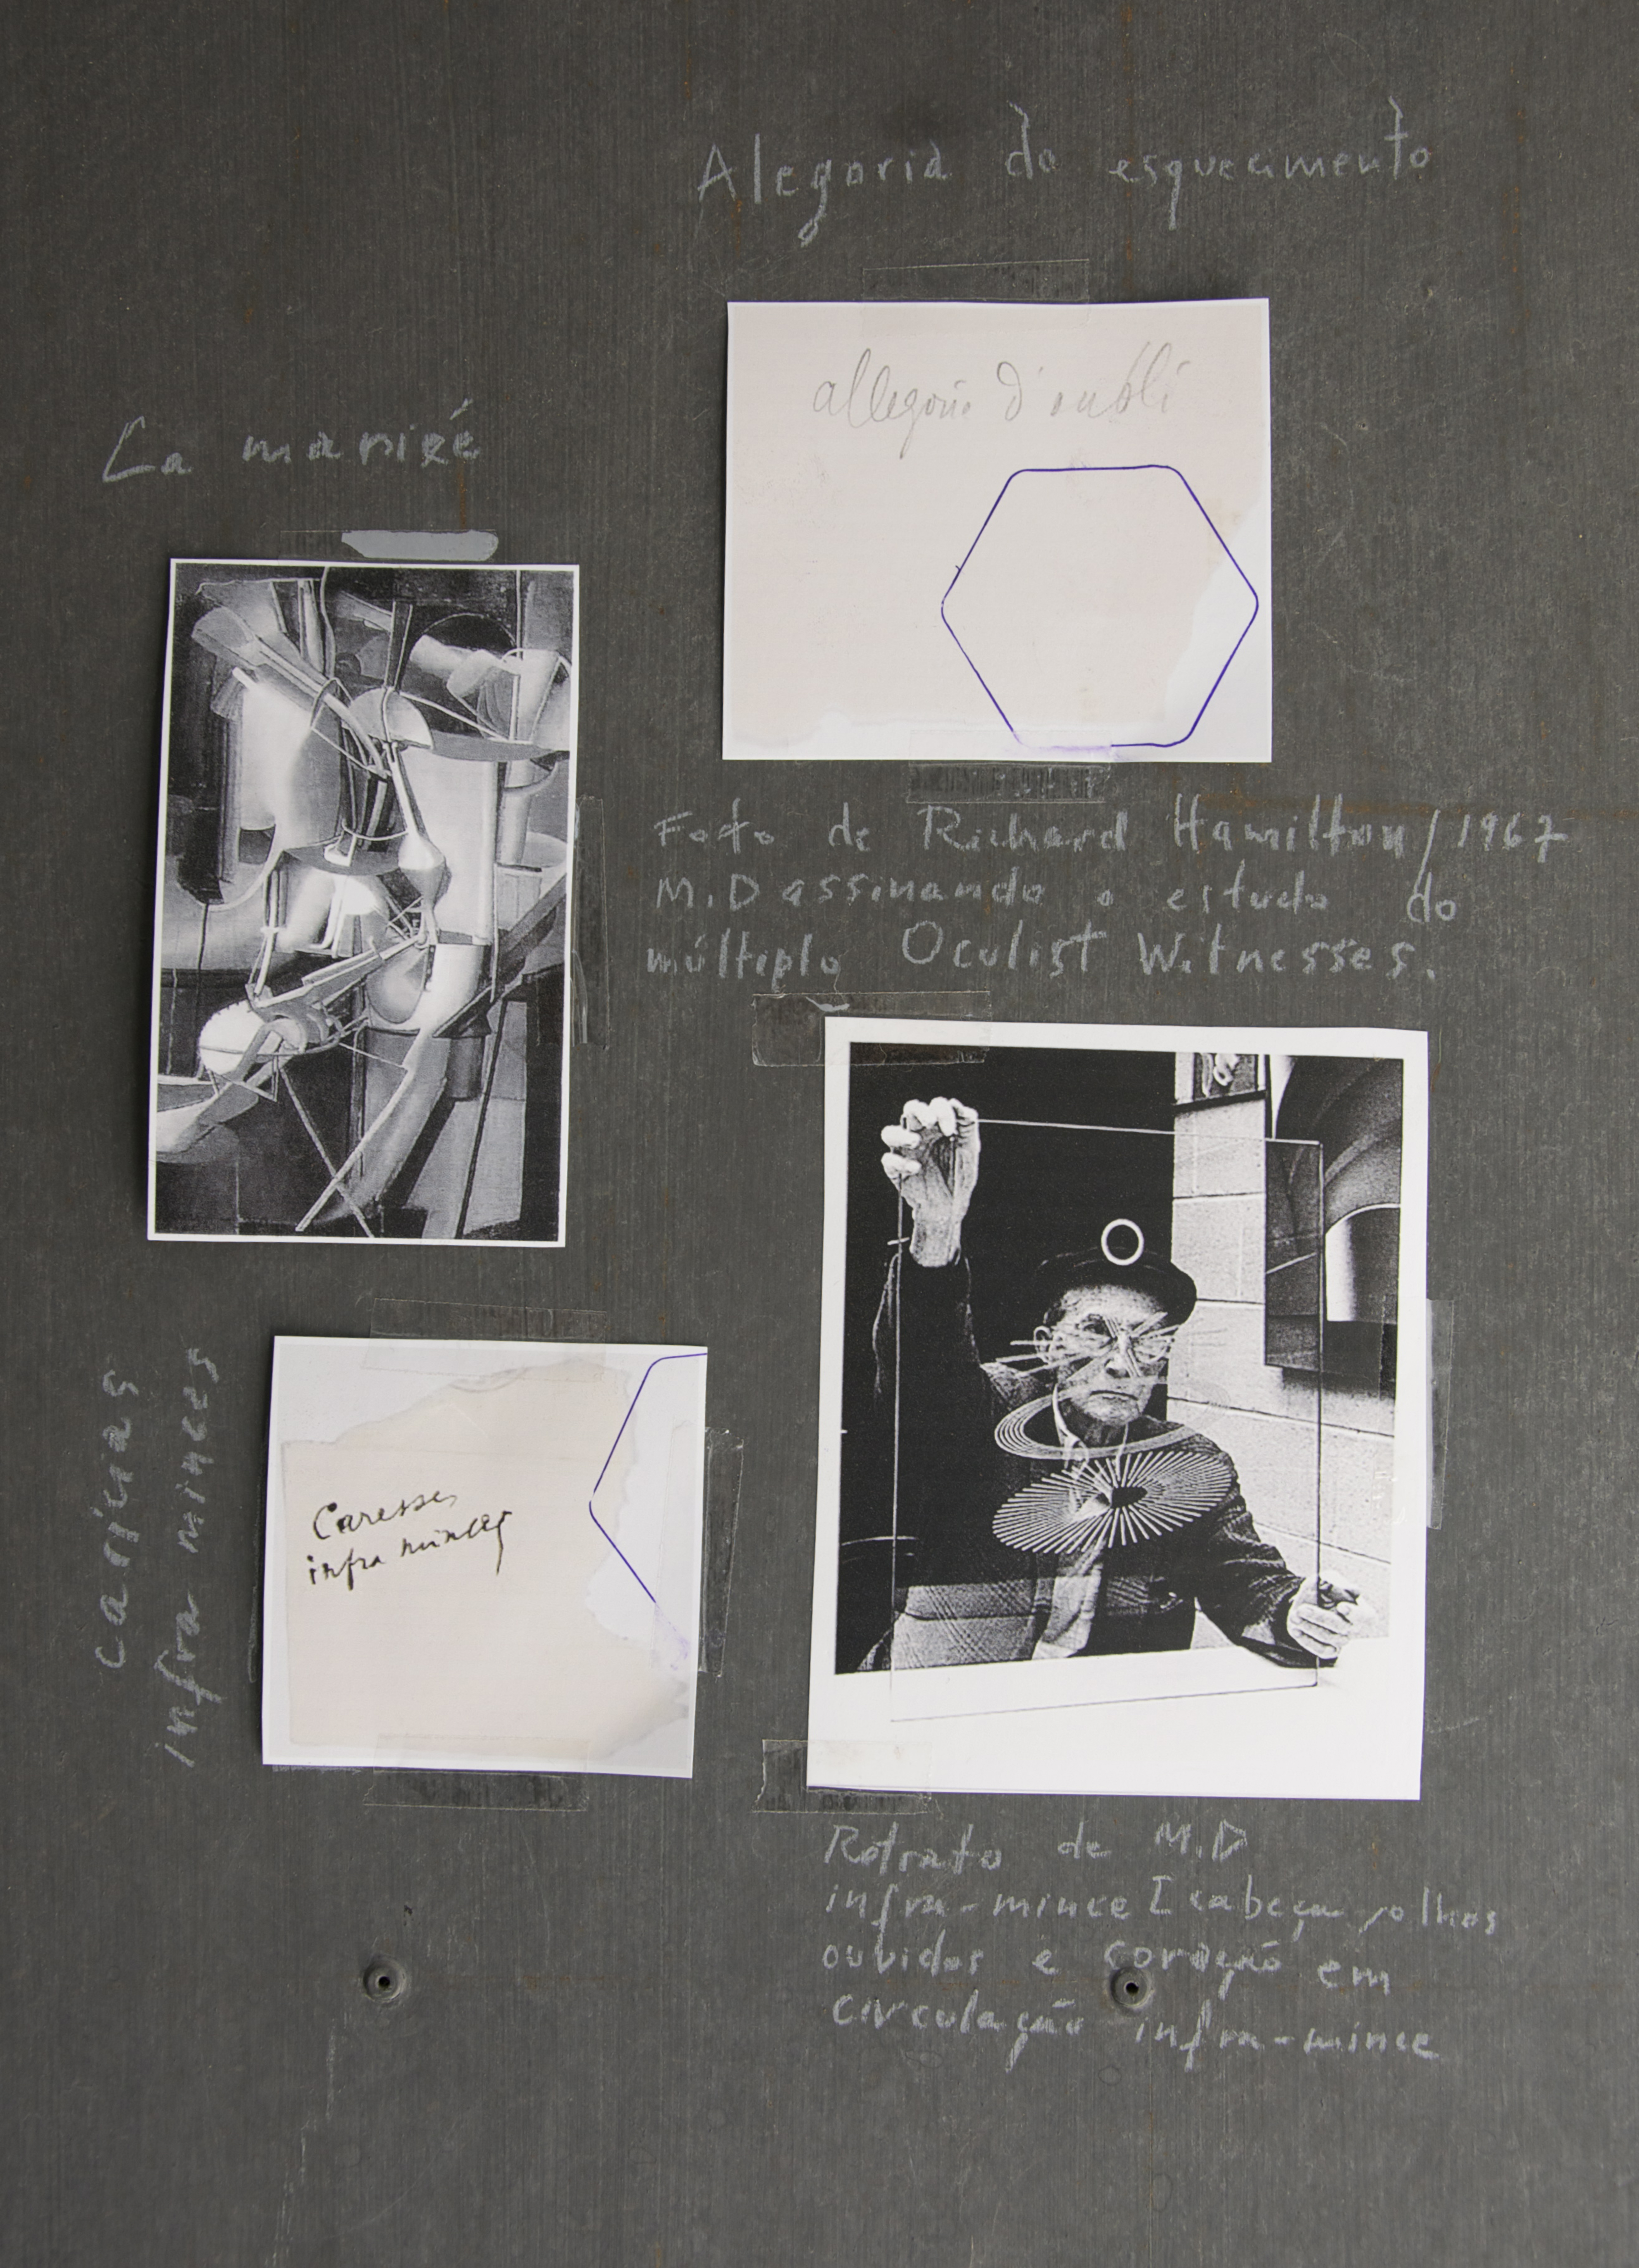 Alegoria do esquecimento
allegorie d'oubli
La mariée
Foto de Richard Hamilton/1967
M.D assinando o estudo do
múltiplo Oculist Witnesses.
Caresses
infra minces
carícias
infra minces
Retrato de M.D
infra-mince I cabeça, olhos
ouvidos e coração em
circulação infra-mince